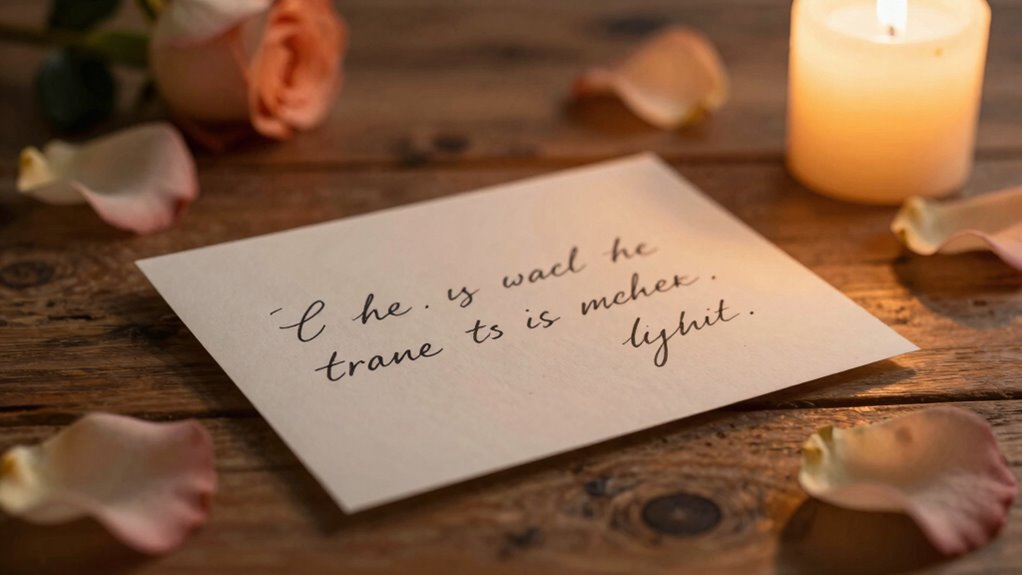 he. is wacl he
trane ts is mchex.
lyhit.